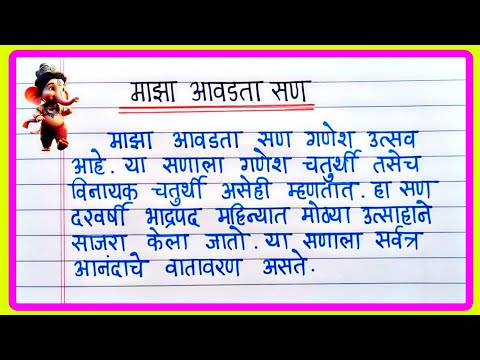 माझा आवडता सण
माझा आवडता सण गणेश उत्सव
आहे. या सणाला गणेश चतुर्थी तसेच
विनायक चतुर्थी असेही म्हणतात. हा सण
दरवर्षी भाद्रपद महिन्यात मोठ्या उत्साहाने
साजरा केला जातो. या सणाला सर्वत्र
आनंदाचे वातावरण असते.